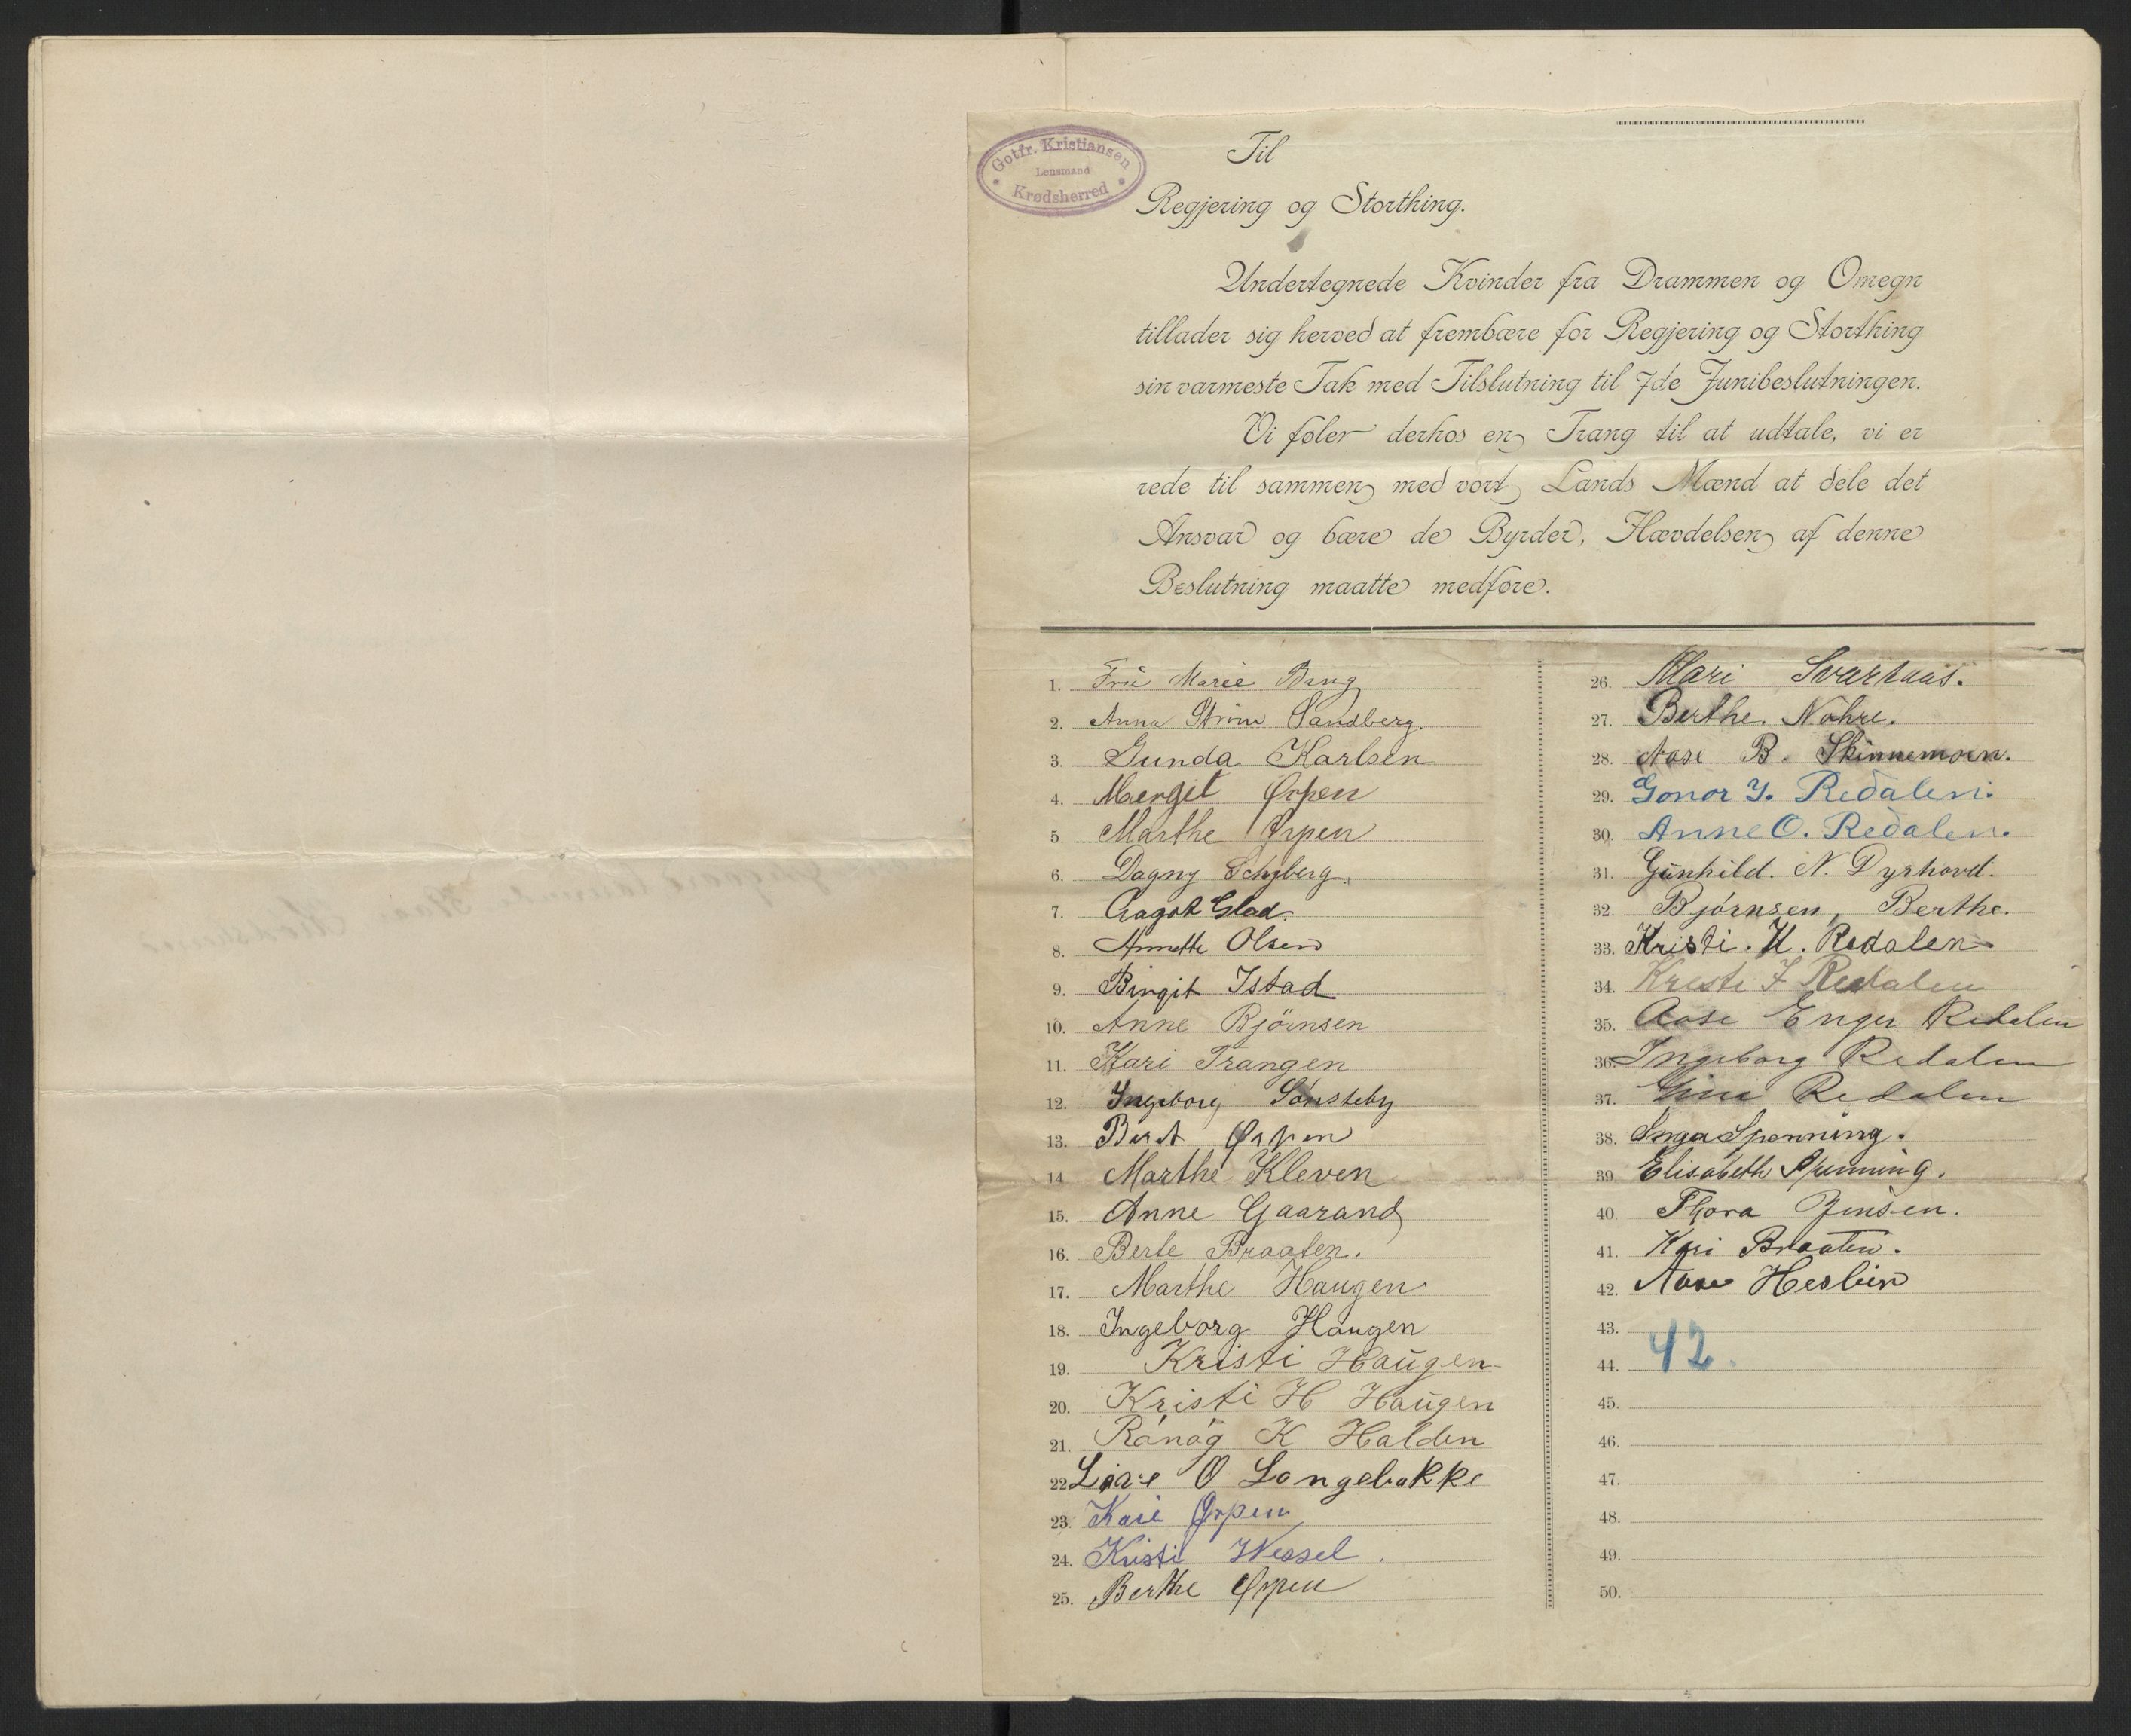 Gotfr. Kristiansen
Lensmand
Krødsherred
Til
Regjering og Storthing.
Undertegnede Kvinder fra Drammen og Omegn
tillader sig herved at frembære for Regjering og Storthing
sin varmeste Tak med Tilslutning til 7de Junibeslutningen.
Vi føler derhos en Trang til at udtale, vi er
rede til sammen med vort Lands Mænd at dele det
Ansvar og bære de Byrder, Hævdelsen af denne
Beslutning maatte medføre.
1. Frü Marie Bang
2. Anna Strøm Sandberg.
3. Gunda Karlsen
4. Margit Ørpen
5 Marthe Ørpen
6. Dagny Schyberg.
7. Aagot Glad.
8. Annette Olsen
9. Birgit Istad
10. Anne Bjørnsen
11. Kari Trangen
12. Ingeborg Sønsteby
13. Berit Ørpen
14 Marthe Kleven
15. Anne Gaarand
16. Berte Braaten.
17. Marthe Haugen
18. Ingeborg Haugen
19. Kristi Haugen
20. Kristi H Haugen
21. Rónåg K Halden
22 O Langebakke
23. Kari Ørpen
24. Kristi Wessel.
25. Berthe Ørpen
26. Mari Svartaas.
27. Berthe. Nøhre.
28. Aase B. Skinnemoen.
29. Gonor Y. Redalen.
30. Anne O. Redalen.
31. Gunhild. N. Dyrhovd.
32. Bjørnsen, Berthe.
33. Kristi. K. Redalen
34. Kristi I Redalen
35. Aase Enger Redalen
36. Ingeborg Redalen
37. Gina Redalen
38. Inga Spenning.
39. Elisabeth Spenning.
40. Thora Jensen.
41. Kari Braaten.
42. Aase Heslien
43.
44. 42.
45.
46.
47.
48.
49.
50.